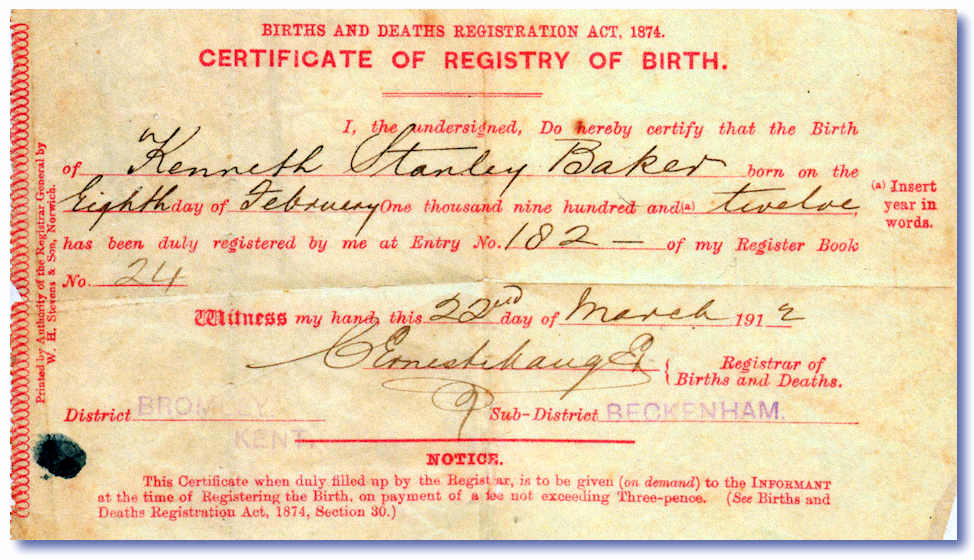 BIRTHS AND DEATHS REGISTRATION ACT, 1874.
CERTIFICATE OF REGISTRY OF BIRTH.
I, the undersigned, Do hereby certify that the Birth
of Kenneth Stanley Baker born on the
Eighth day of February One thousand nine hundred and (a) twelve,
has been duly registered by me at Entry No. 182 — of my Register Book
No. 24
(a) Insert
year in
words.
Witness my hand, this 22nd day of March 1912
Registrar of
Births and Deaths.
District BROMLEY. Sub-District BECKENHAM.
KENT.
NOTICE.
This Certificate when duly filled up by the Registrar, is to be given (on demand) to the INFORMANT
at the time of Registering the Birth, on payment of a fee not exceeding Three-pence. (See Births and
Deaths Registration Act, 1874, Section 30.)
Printed by Authority of the Registrar General by
W. H. Stevens & Son, Norwich.